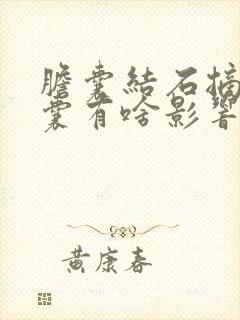 膽囊結石摘
囊有啥影響
黃康春